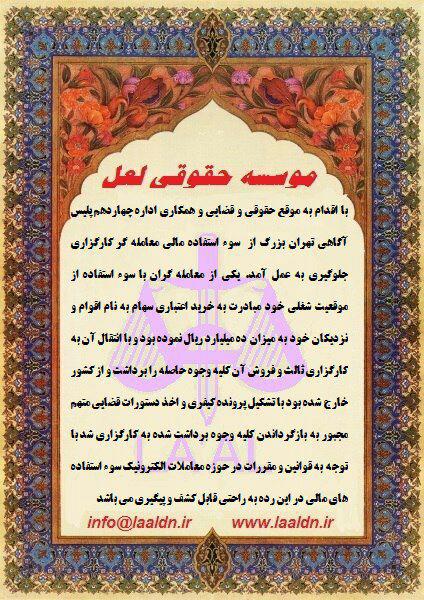 موسسه حقوقی لعل
با اقدام به موقع حقوقی و قضایی و همکاری اداره چهاردهم پلیس
آگاهی تهران بزرگ از سوء استفاده مالی معامله گر کارگزاری
جلوگیری به عمل آمد. یکی از معامله گران با سوء استفاده از
موقعیت شغلی خود مبادرت به خرید اعتباری سهام به نام اقوام و
نزدیکان خود به میزان ده میلیارد ریال نموده بود و با انتقال آن به
کارگزاری ثالث و فروش آن کلیه وجوه حاصله را برداشت و از کشور
خارج شده بود با تشکیل پرونده کیفری و اخذ دستورات قضایی متهم
مجبور به بازگرداندن کلیه وجوه برداشت شده به کارگزاری شد با
توجه به قوانین و مقررات در حوزه معاملات الکترونیک سوء استفاده
های مالی در این رده به راحتی قابل کشف و پیگیری می باشد
info@laaldn.ir www.laaldn.ir
LAAL